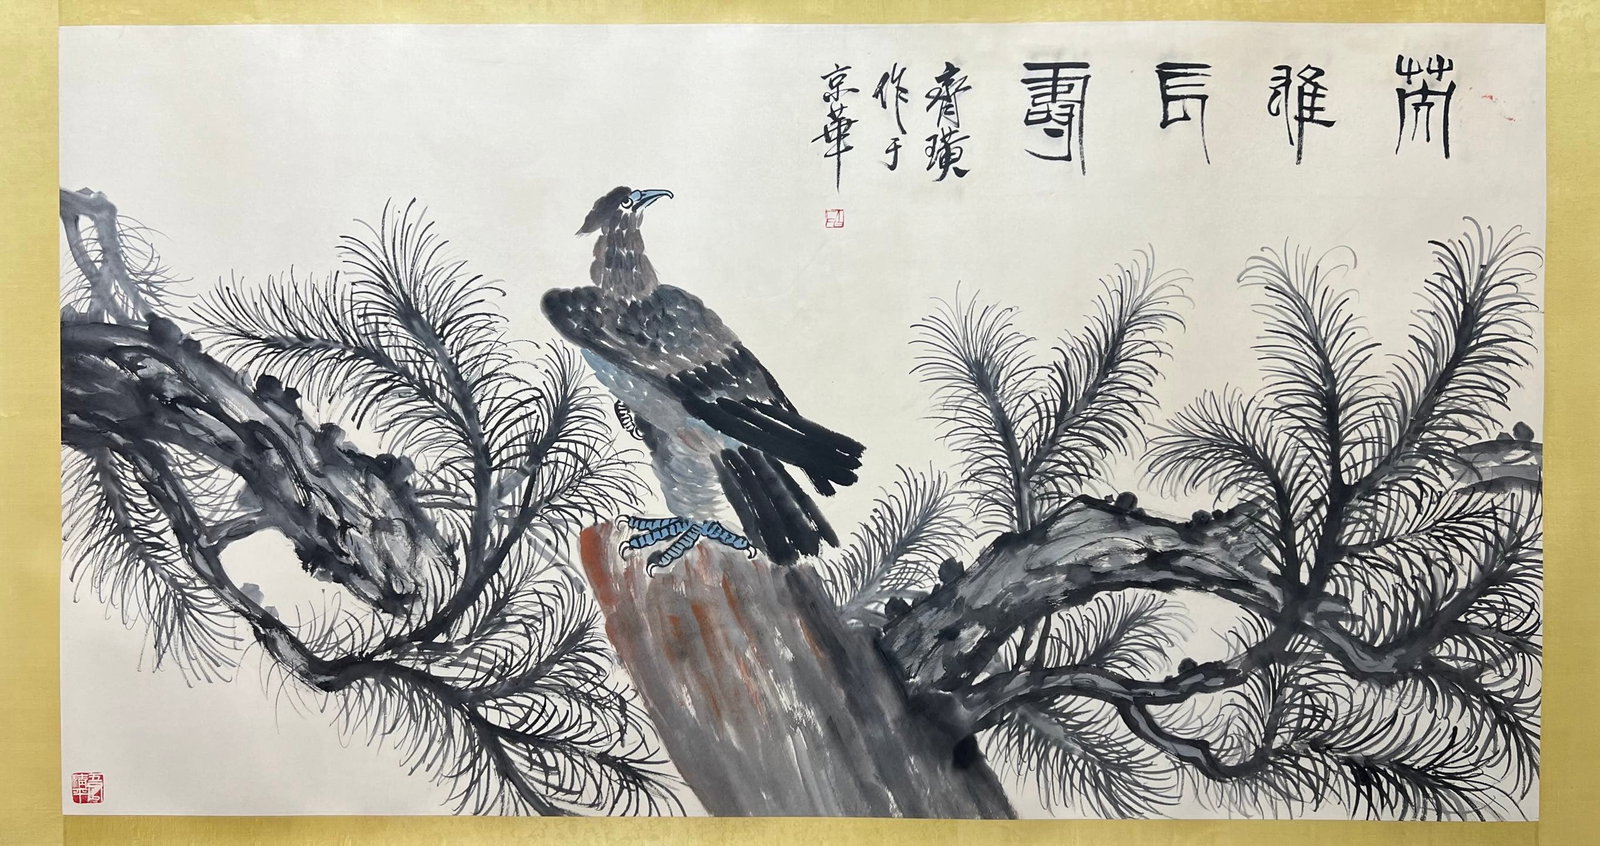 英雄長壽
齊璜
作于
京華